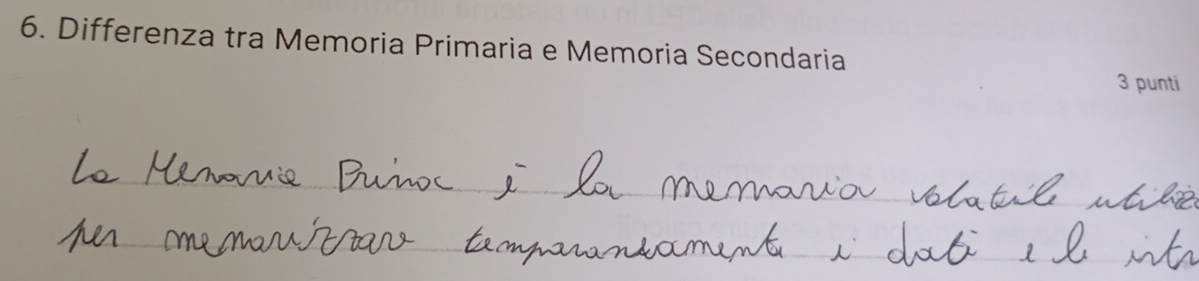 6. Differenza tra Memoria Primaria e Memoria Secondaria
3 punti
La Memoria è la memoria volatile
per memorizzare temporaneamente i dati e le